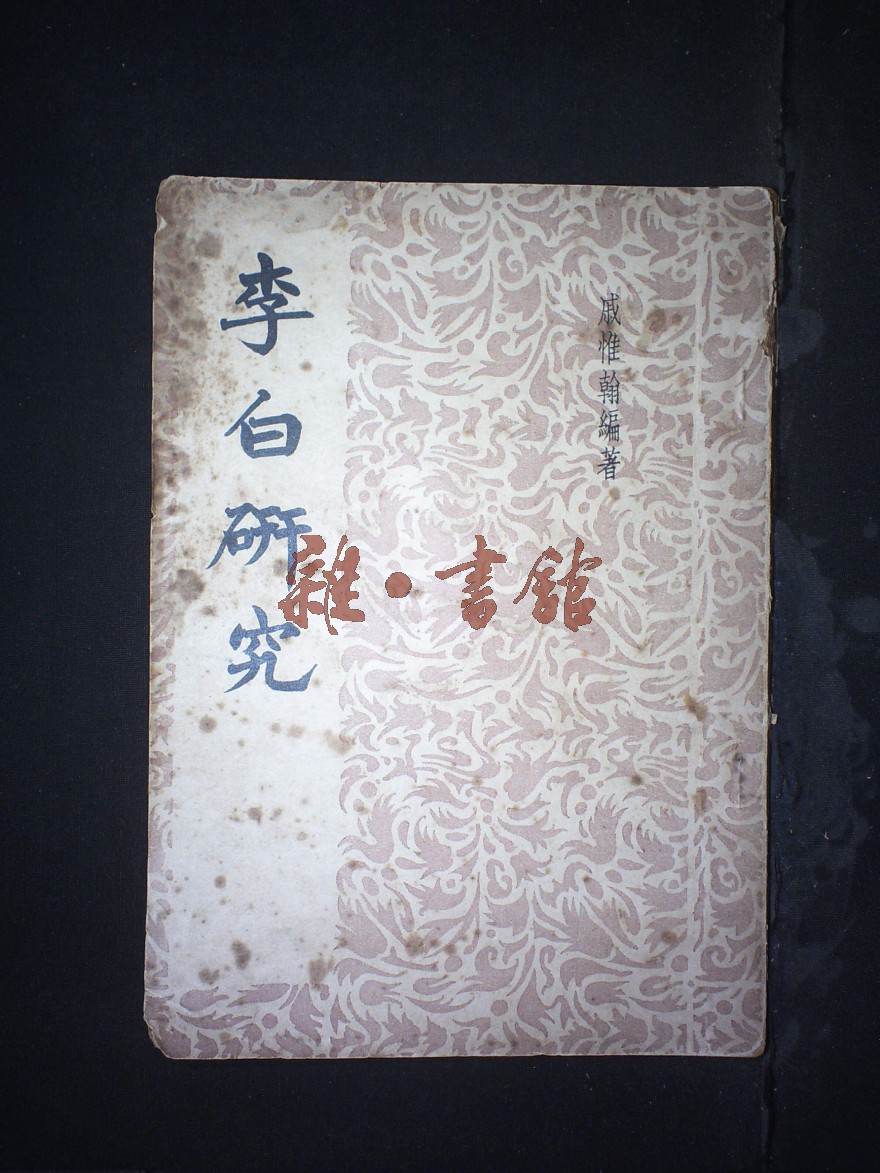 李白研究
戚惟翰編著
雜·書館